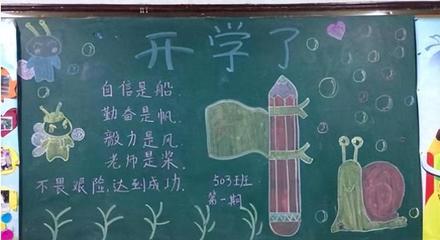 开学了
自信是船
勤奋是帆
毅力是风
老师是桨
不畏艰险,达到成功.
503班
第一期